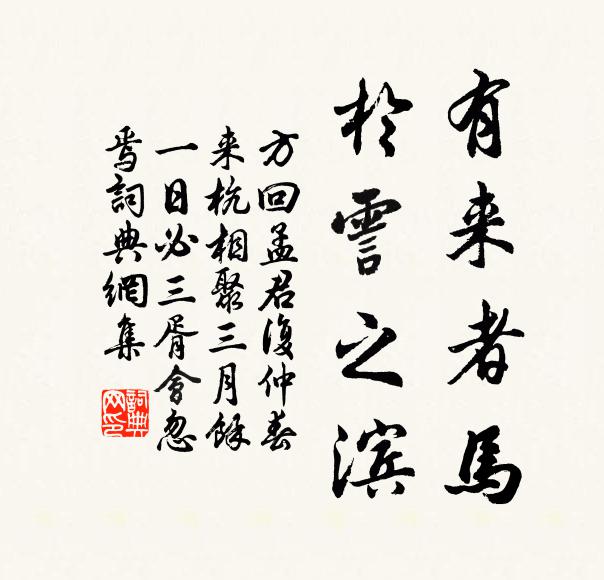 有来者馬
於霅之滨
方回孟君復仲春
来杭相聚三月餘
一日必三胥會忽
焉詞典網集
詞典網印